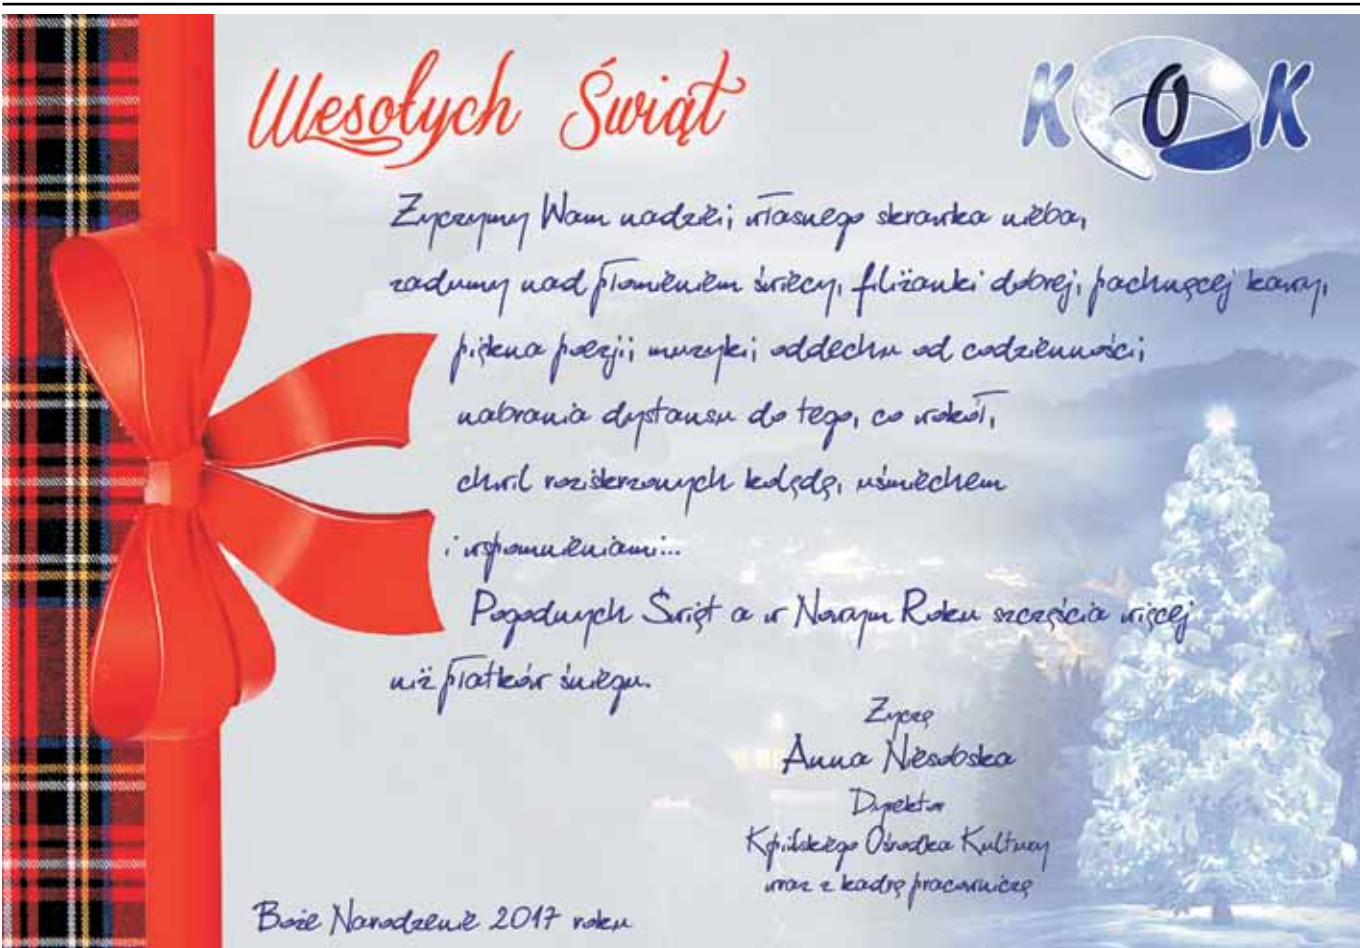 Wesołych Świąt
KOK
Życzymy Wam nadziei, własnego skrawka nieba,
zadumy nad płomieniem świecy, filiżanki dobrej, pachnącej kawy,
piękna poezji, muzyki, oddechu od codzienności,
nabrania dystansu do tego, co wokół,
chwil roziskrzonych kolędą, uśmiechem
i wspomnieniami...
Pogodnych Świąt a w Nowym Roku szczęścia więcej
niż płatków śniegu.
Życzą
Anna Niesobska
Dyrektor
Kępińskiego Ośrodka Kultury
wraz z kadrą pracowniczą
Boże Narodzenie 2017 roku